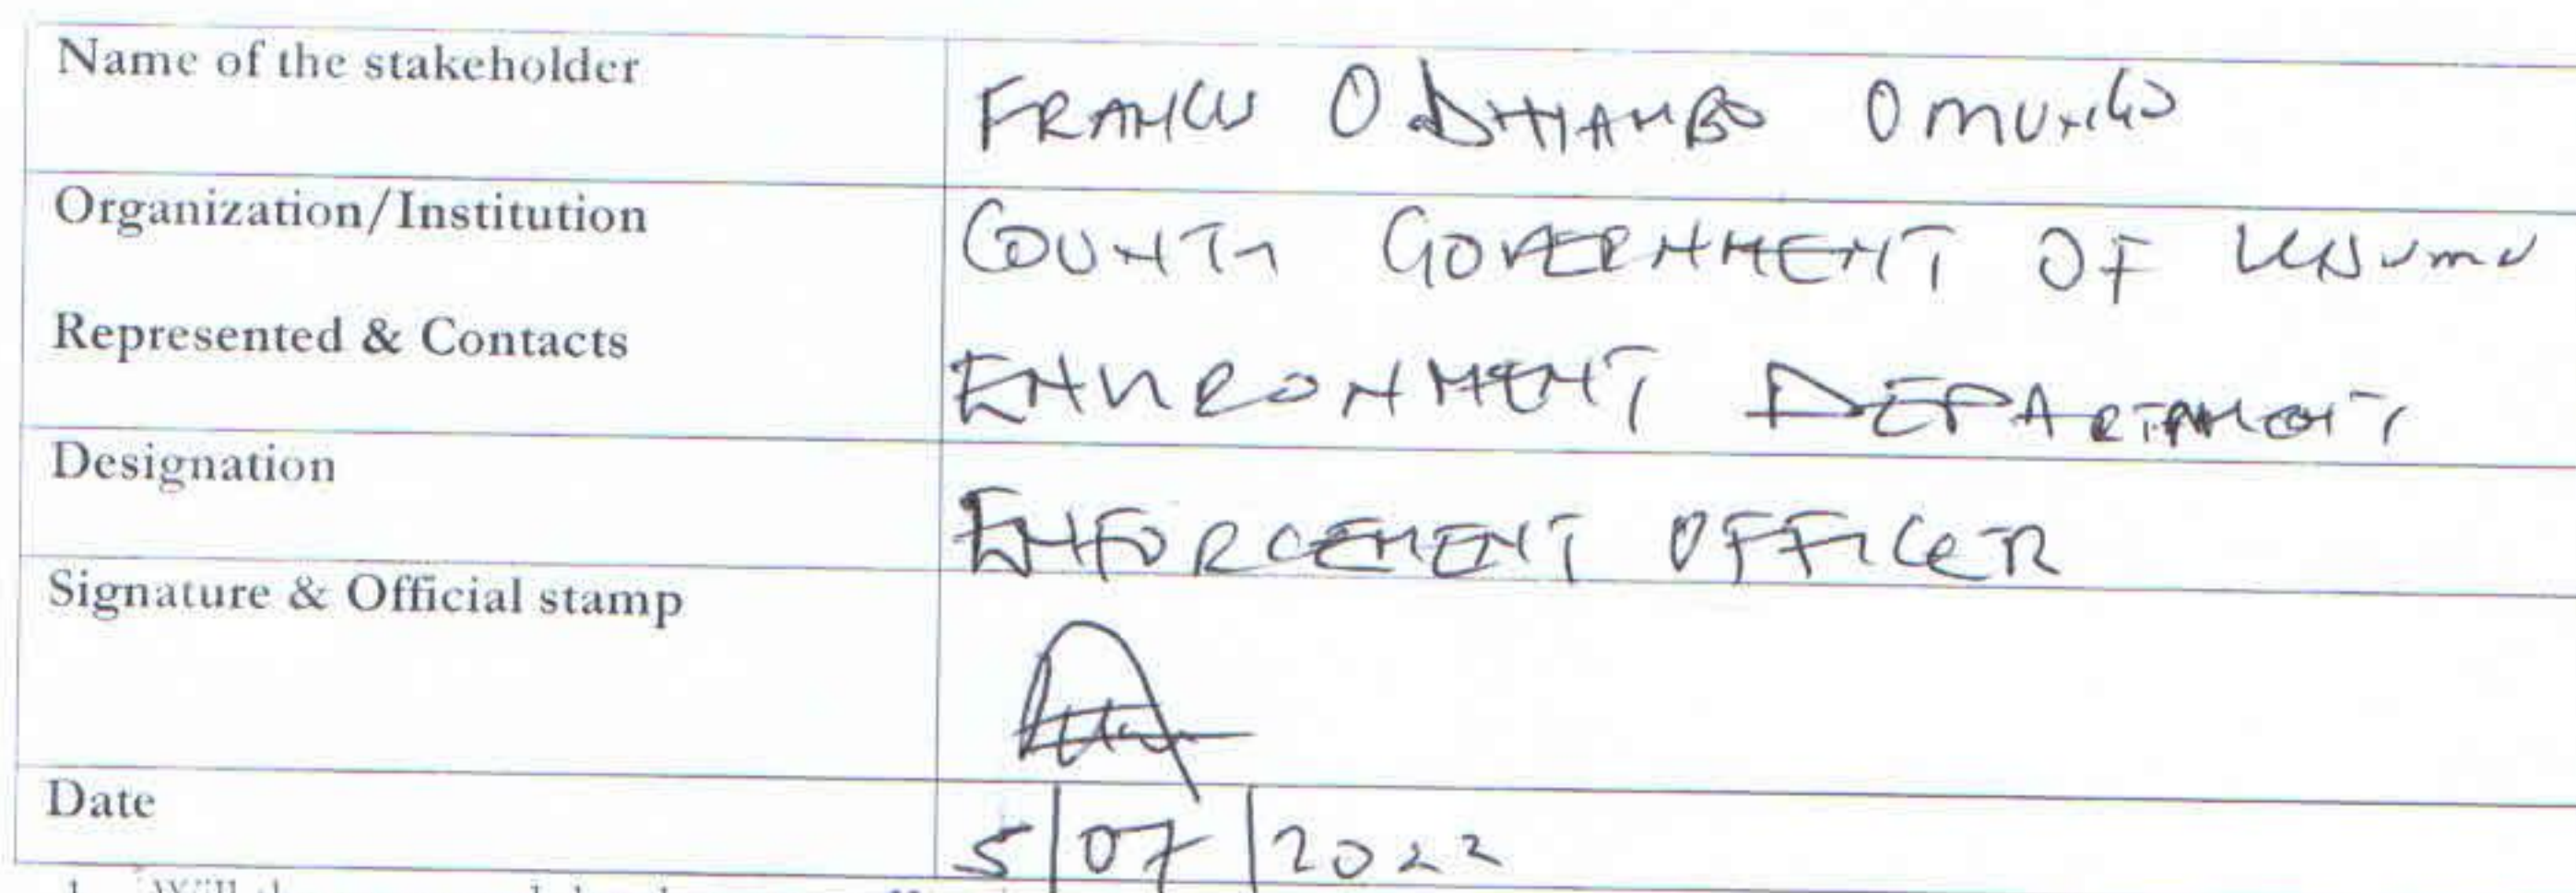 Name of the stakeholder
FRANCIS ODHIAMBO
Organization/Institution
COUNTY GOVERNMENT OF KISUMU
Represented & Contacts
ENVIRONMENT DEPARTMENT
Designation
ENFORCEMENT OFFICER
Signature & Official stamp
Date
5/07/2022